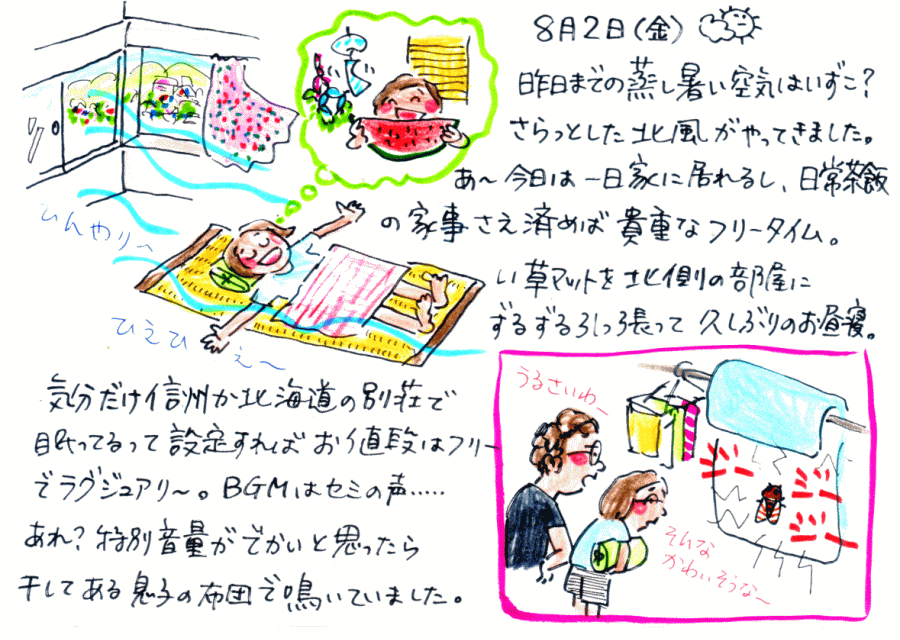 8月2日(金)
昨日までの蒸し暑い空気はいずこ?
さらっとした北風がやってきました。
あ～今日は一日家に居れるし、日常茶飯
の家事さえ済めば貴重なフリータイム。
い草マットを北側の部屋に
ずるずるひっぱって久しぶりのお昼寝。
ひんやり～
ひえひえ～
気分だけ信州か北海道の別荘で
眠ってるって設定すればお値段はフリー
でラグジュアリ～。BGMはセミの声.....
あれ?特別音量がでかいと思ったら
干してある息子の布団で鳴いていました。
うるさいわー
そんな
かわいそうな～
ジー
ジー
ジー
ジー